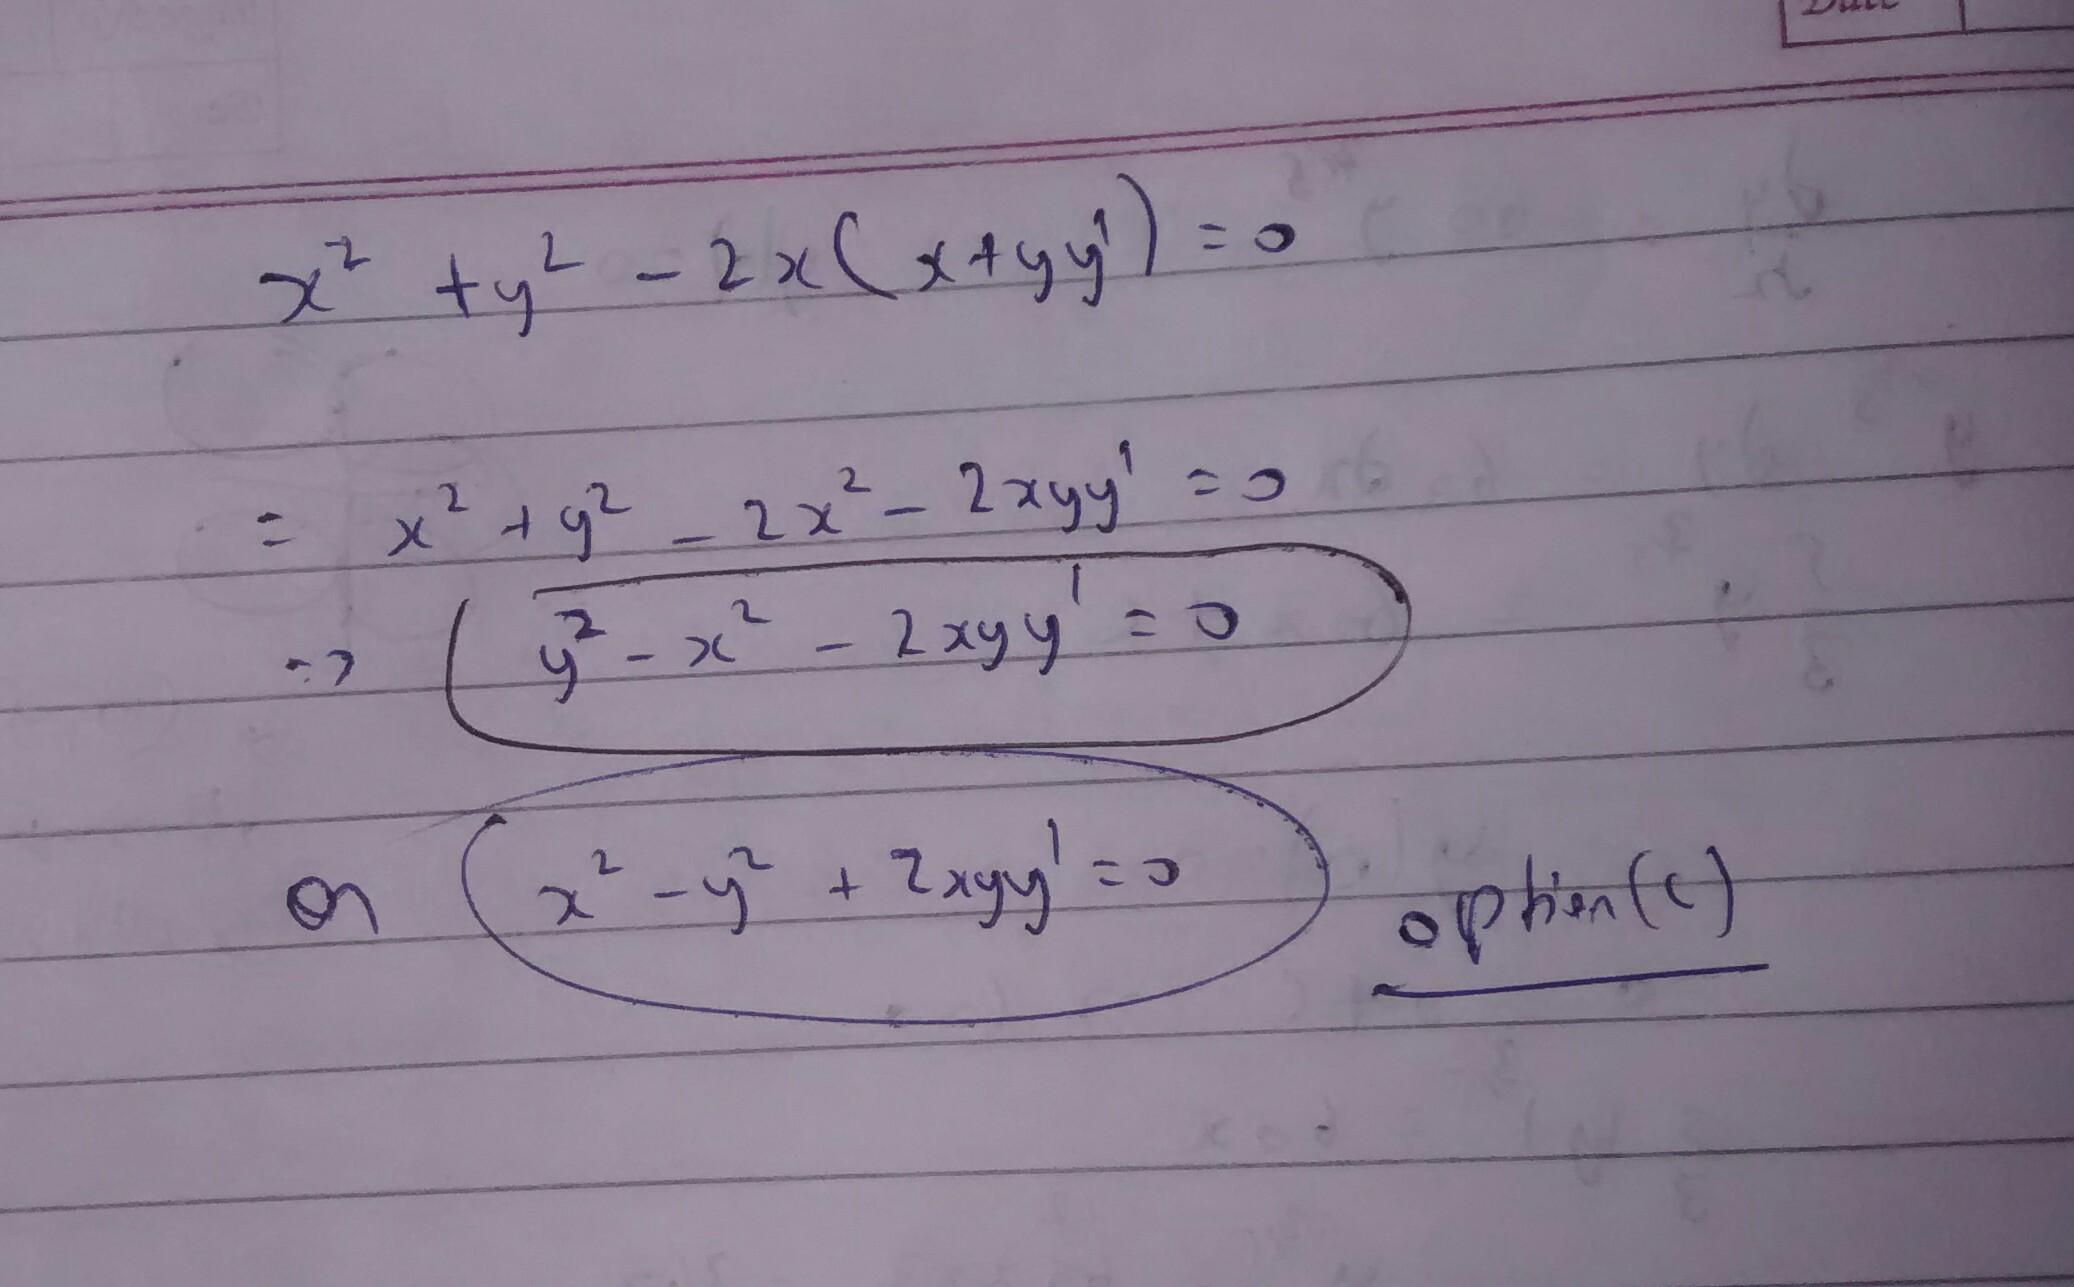 Date
x² + y² - 2x(x+yy') = 0
= x² + y² - 2x² - 2xyy' = 0
=> y² - x² - 2xyy' = 0
or x² - y² + 2xyy' = 0 option(c)